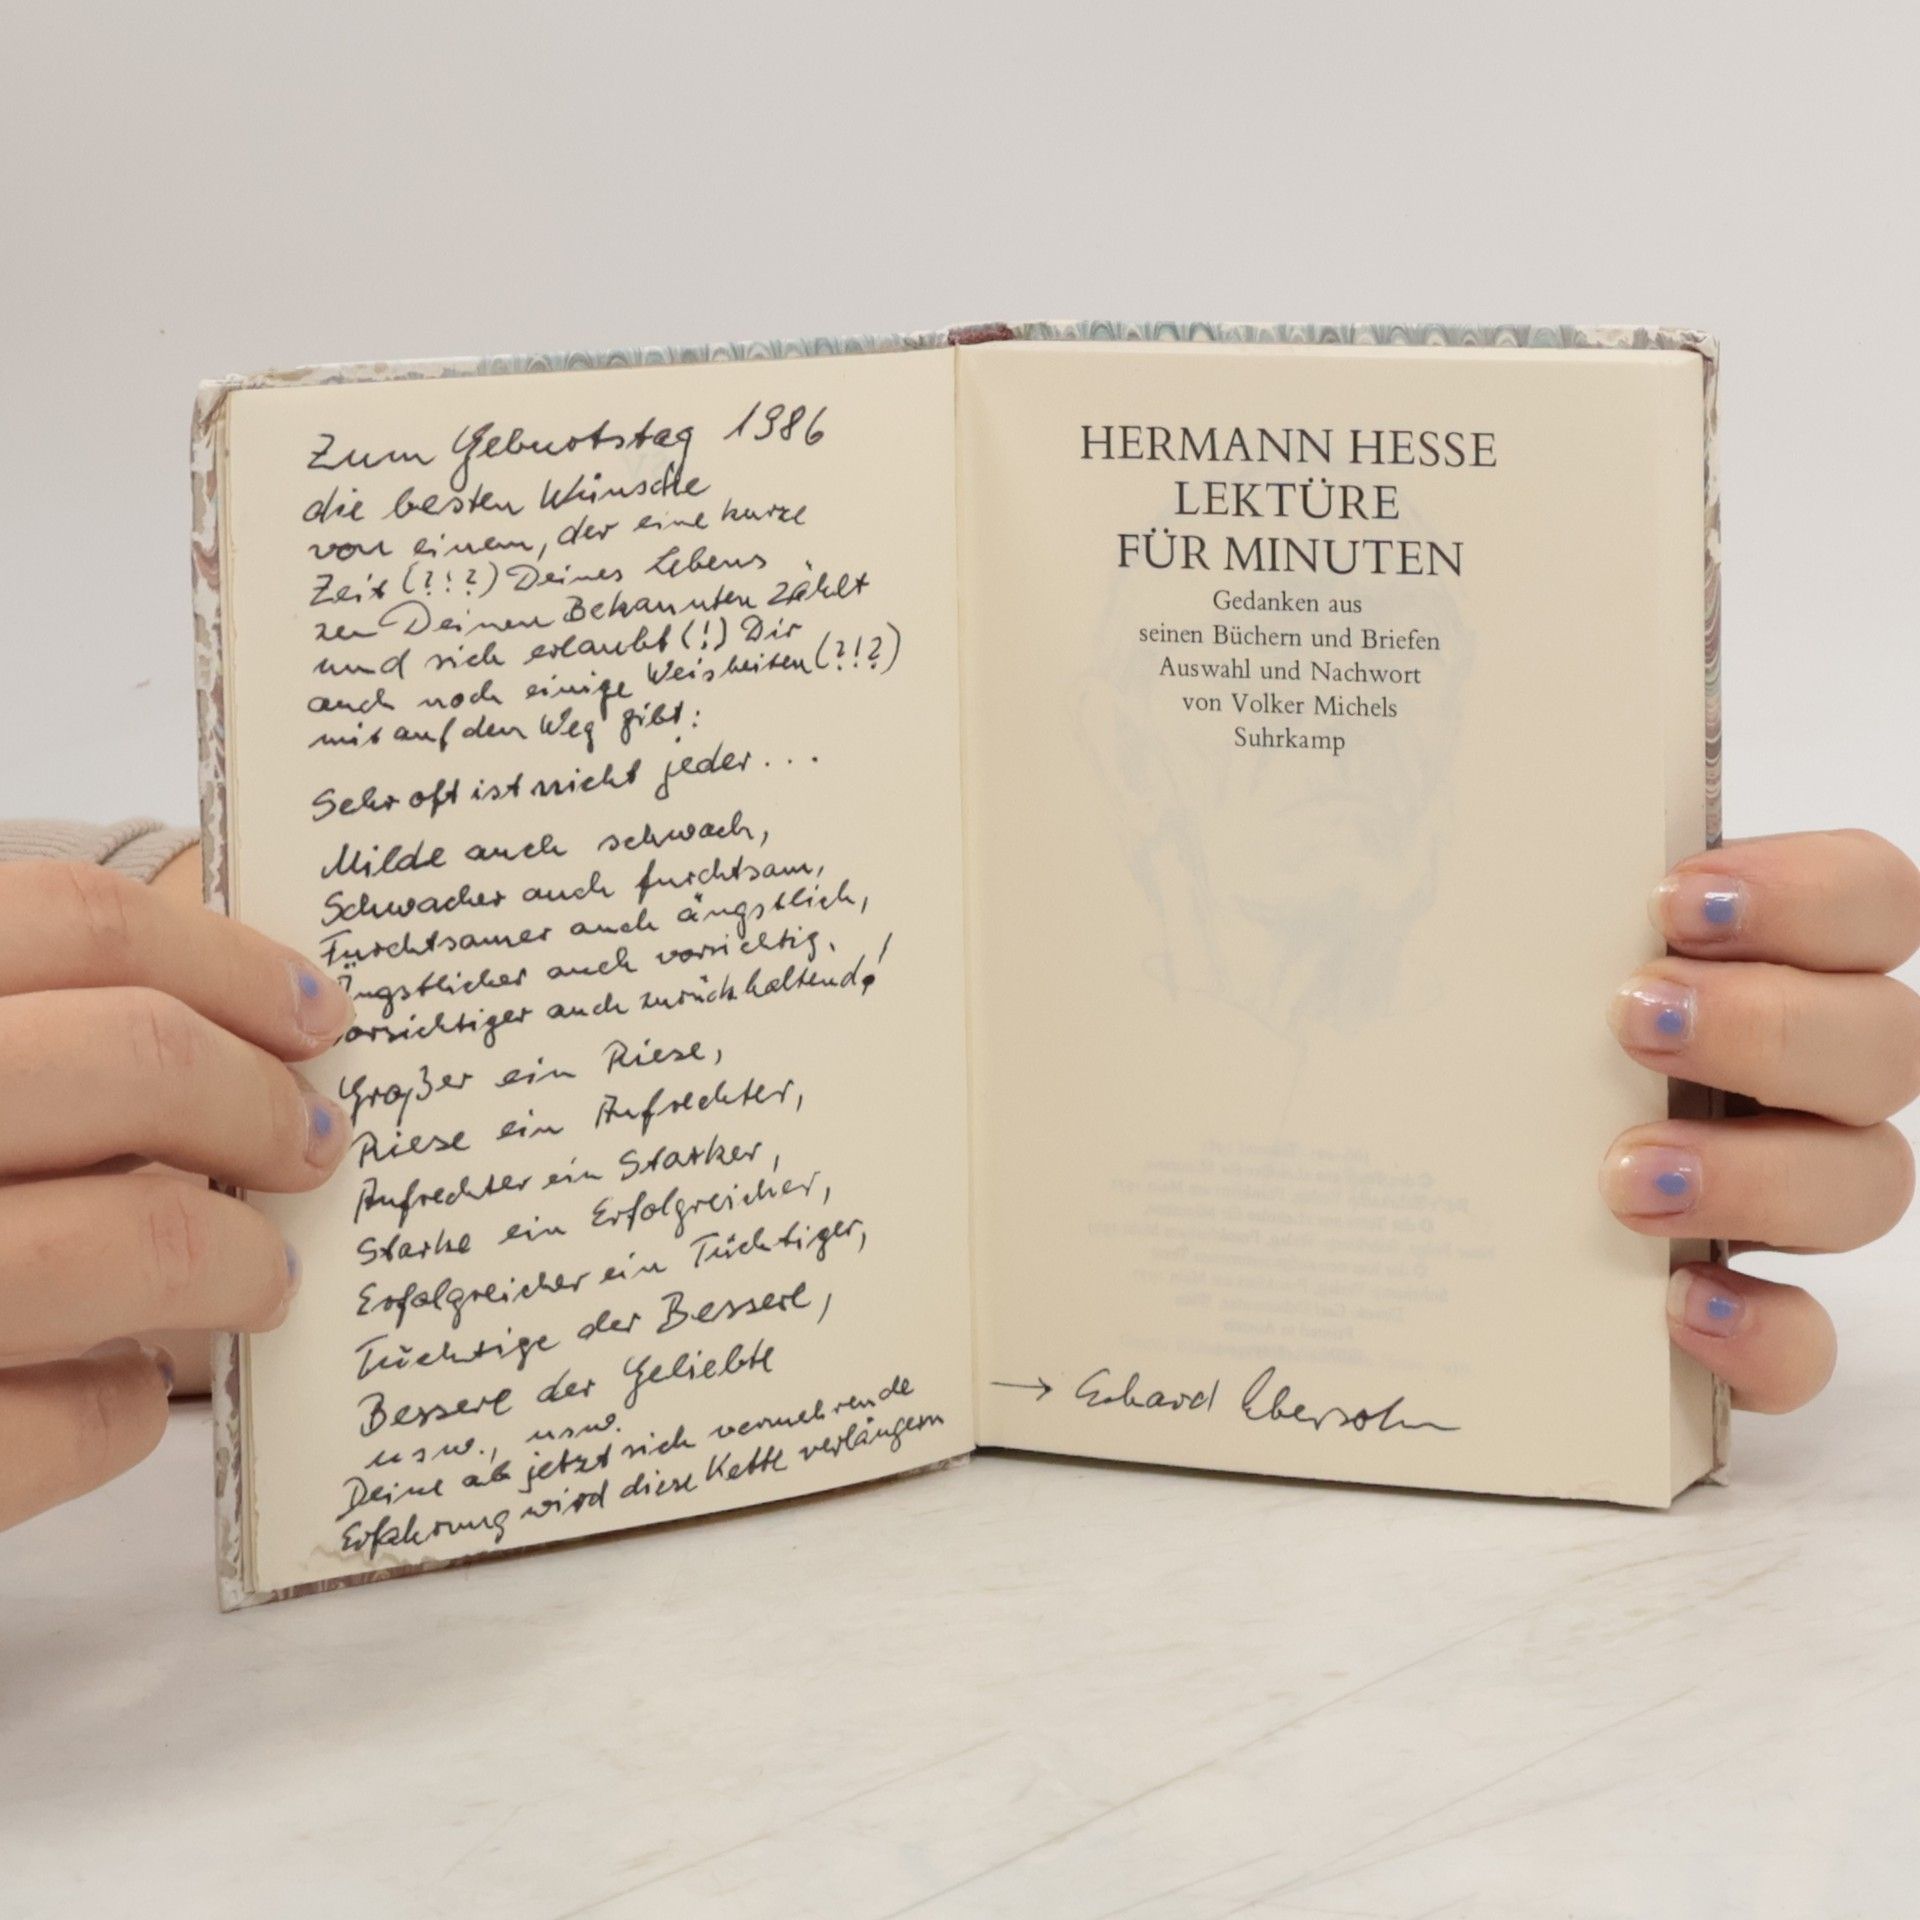 Zum Geburtstag 1986
die besten Wünsche
von einem, der eine kurze
Zeit (?!?) Deines Lebens
zu Deinen Bekannten zählt
und sich erlaubt (!) Dir
auch noch einige Weisheiten (?!?)
mit auf den Weg gibt:
Sehr oft ist nicht jeder...
Milde auch schwach,
Schwacher auch furchtsam,
Furchtsamer auch ängstlich,
Ängstlicher auch vorsichtig,
Vorsichtiger auch zurückhaltend!
Großer ein Riese,
Riese ein Aufrechter,
Aufrechter ein Starker,
Starke ein Erfolgreicher,
Erfolgreicher ein Tüchtiger,
Tüchtige der Bessere,
Bessere der Geliebte
usw., usw.
Deine ab jetzt sich vermehrende
Erfahrung wird diese Kette verlängern
HERMANN HESSE
LEKTÜRE
FÜR MINUTEN
Gedanken aus
seinen Büchern und Briefen
Auswahl und Nachwort
von Volker Michels
Suhrkamp
→ Erhard Ebersohn